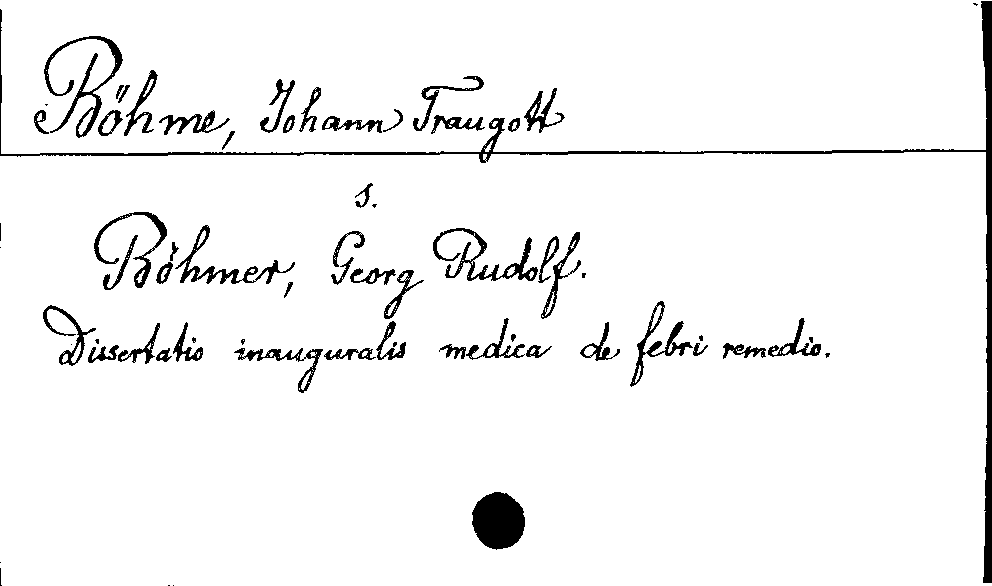 Böhme, Johann Traugott
s.
Böhmer, Georg Rudolf.
Dissertatio inauguralis medica de febri remedio.